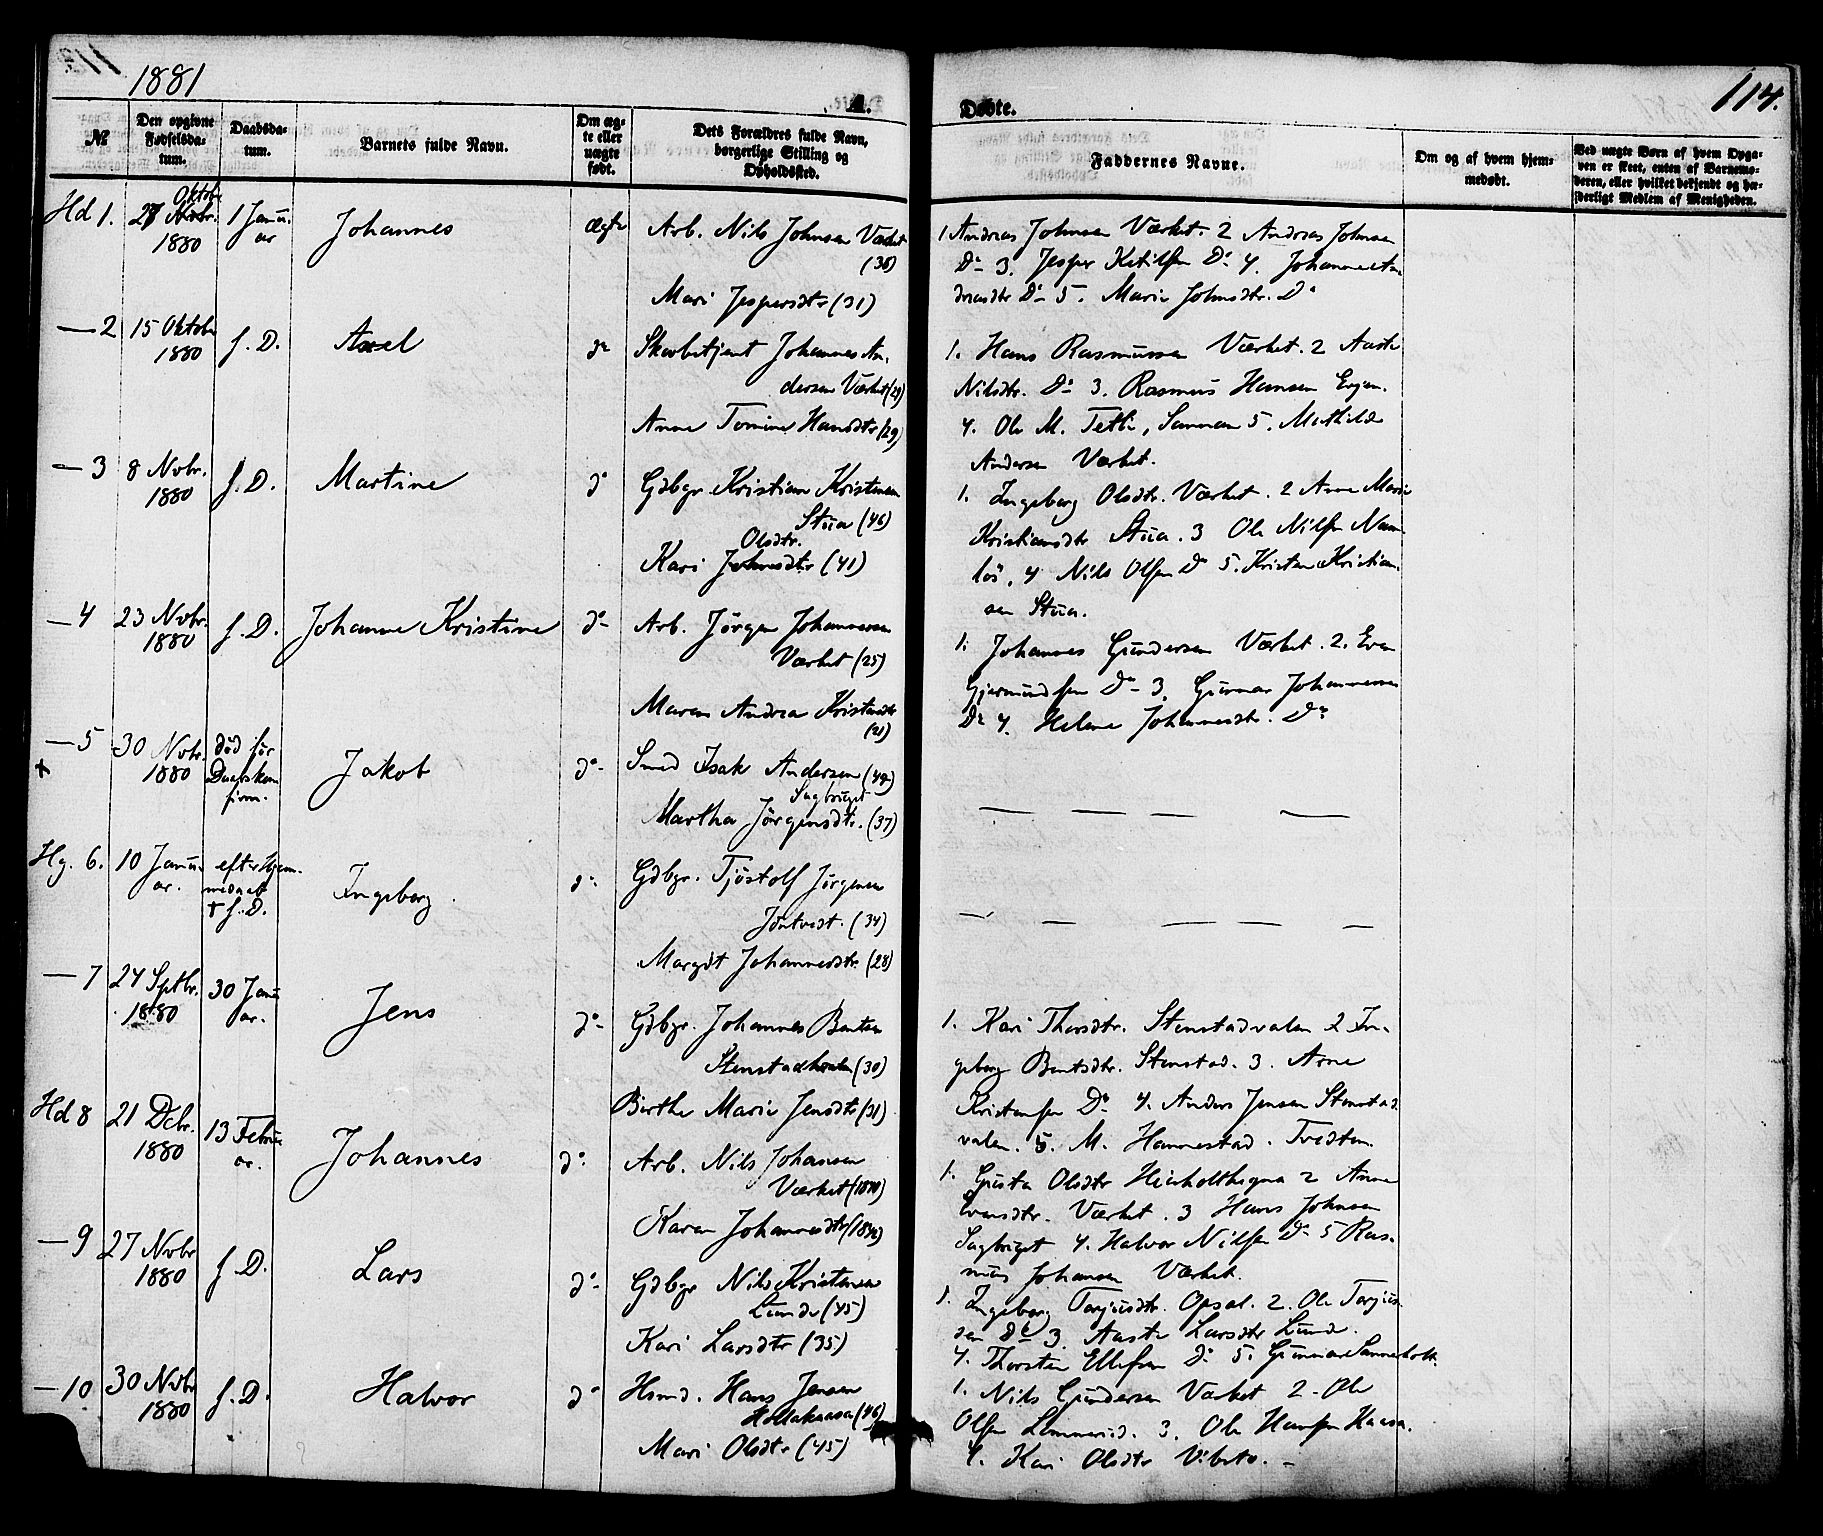 1881
A. Døbte.
114.
№
Den opgivne Fødselsdatum.
Daabsdatum.
Barnets fulde Navn.
Om ægte eller uægte født.
Dets Forældres fulde Navn, borgerlige Stilling og Opholdssted.
Faddernes Navne.
Om og af hvem hjemmedøbt.
Ved uægte Børn af hvem Opgaven er skeet, enten af Barnemoderen, eller hvilket bekjendt og hæderligt Medlem af Menigheden.
Hd 1.
27 Oktbr.
1880
1 Janu-
ar
Johannes
ægte
Arb. Nils Johnsen Værket
(36)
Mari Jespersdtr (31)
1 Andreas Johnsen Værket. 2 Andreas Johnsen
Do 3. Jesper Ketilsen Do 4. Johanne An-
dreasdtr Do 5. Marie Johnsdtr. Do
— 2
15 Oktobr
1880
s. D.
Axel
do
Skovbetjent Johannes An-
dersen Værket (29)
Anne Tomine Hansdtr (29)
1. Hans Rasmussen Værket. 2 Aaste
Nilsdtr. Do 3. Rasmus Hansen
4. Ole M. Tetli, 5. Mathilde
Andersen Værket.
— 3
8 Nvbr.
1880
s. D.
Martine
do
Gdbgr Kristian Kristensen
Stua (46)
Olsdtr.
Kari (41)
1. Ingeborg Olsdtr. Værket. 2 Anne Marie
Kristiansdtr Stua. 3 Ole Nilsen Nam-
løs. 4 Nils Olsen Do 5. Kristen Kristian-
sen Stua.
— 4
23 Nvbr.
1880
s. D.
Johanne Kristine
do
Arb. Jørgen Johannessen
Værket (25)
Maren Andrea Kristensdtr
(21)
1. Johannes Gundersen Værket. 2. Even
Gjermundsen Do 3. Gunnar Johannessen
Do 4. Helene Johannesdtr. Do
— 5
30 Nvbr.
1880
død før
Daabskon
firm.
Jakob
do
Smed Isak Andersen (42)
Sagbruget
Martha Jørgensdtr. (37)
Hg. 6.
10 Janu-
ar.
efter Hjem-
medaab
† s. D.
Ingeborg.
do
Gdbgr. Tjøstolf Jørgensen
Jøntvedt. (34)
Margit Johannesdtr. (28)
— 7
24 Septbr.
1880
30 Janu
ar.
Jens
do
Gdbgr. Johannes Bentsen
Stenstadhvalen (30)
Birthe Marie Jensdtr (31)
1. Kari Thorsdtr. Stenstadvalen 2 In-
geborg Bentsdtr. Stenstad. 3. Arne
Kristensen Do 4. Anders Jensen Stenstad
valen. 5. M. Hannestad. Tvedten.
Hd 8
21 Dcbr.
1880
13 Febru
ar.
Johannes
do
Arb. Nils Johansen
Værket
Karen Johannesdtr
1. Gusta Olsdtr Heiseholthegna 2 Anne
Evensdtr. Værket. 3 Hans Johnsen
Sagbruget 4. Halvor Nilsen Do 5 Ras-
mus Johansen Værket.
— 9
27 Nvbr
1880
s. D.
Lars
do
Gdbgr Nils Kristensen
Lunde (45)
Kari Larsdtr (35)
1. Ingeborg Torjusdtr. Opsal. 2. Ole Torjus-
sen Do 3. Aaste Larsdtr Lunde.
4. Thorsten Ellefsen Do 5. Gunnar Sanneholt.
— 10
30 Nvbr
1880
s. D.
Halvor
do
Hsmd. Hans Jensen
Hollakaasa (46)
Mari Olsdtr (45)
1. Nils Gundersen Værket 2. Ole
Olsen 3. Ole Hansen Kaasa.
4. Kari Olsdtr Vibeto.